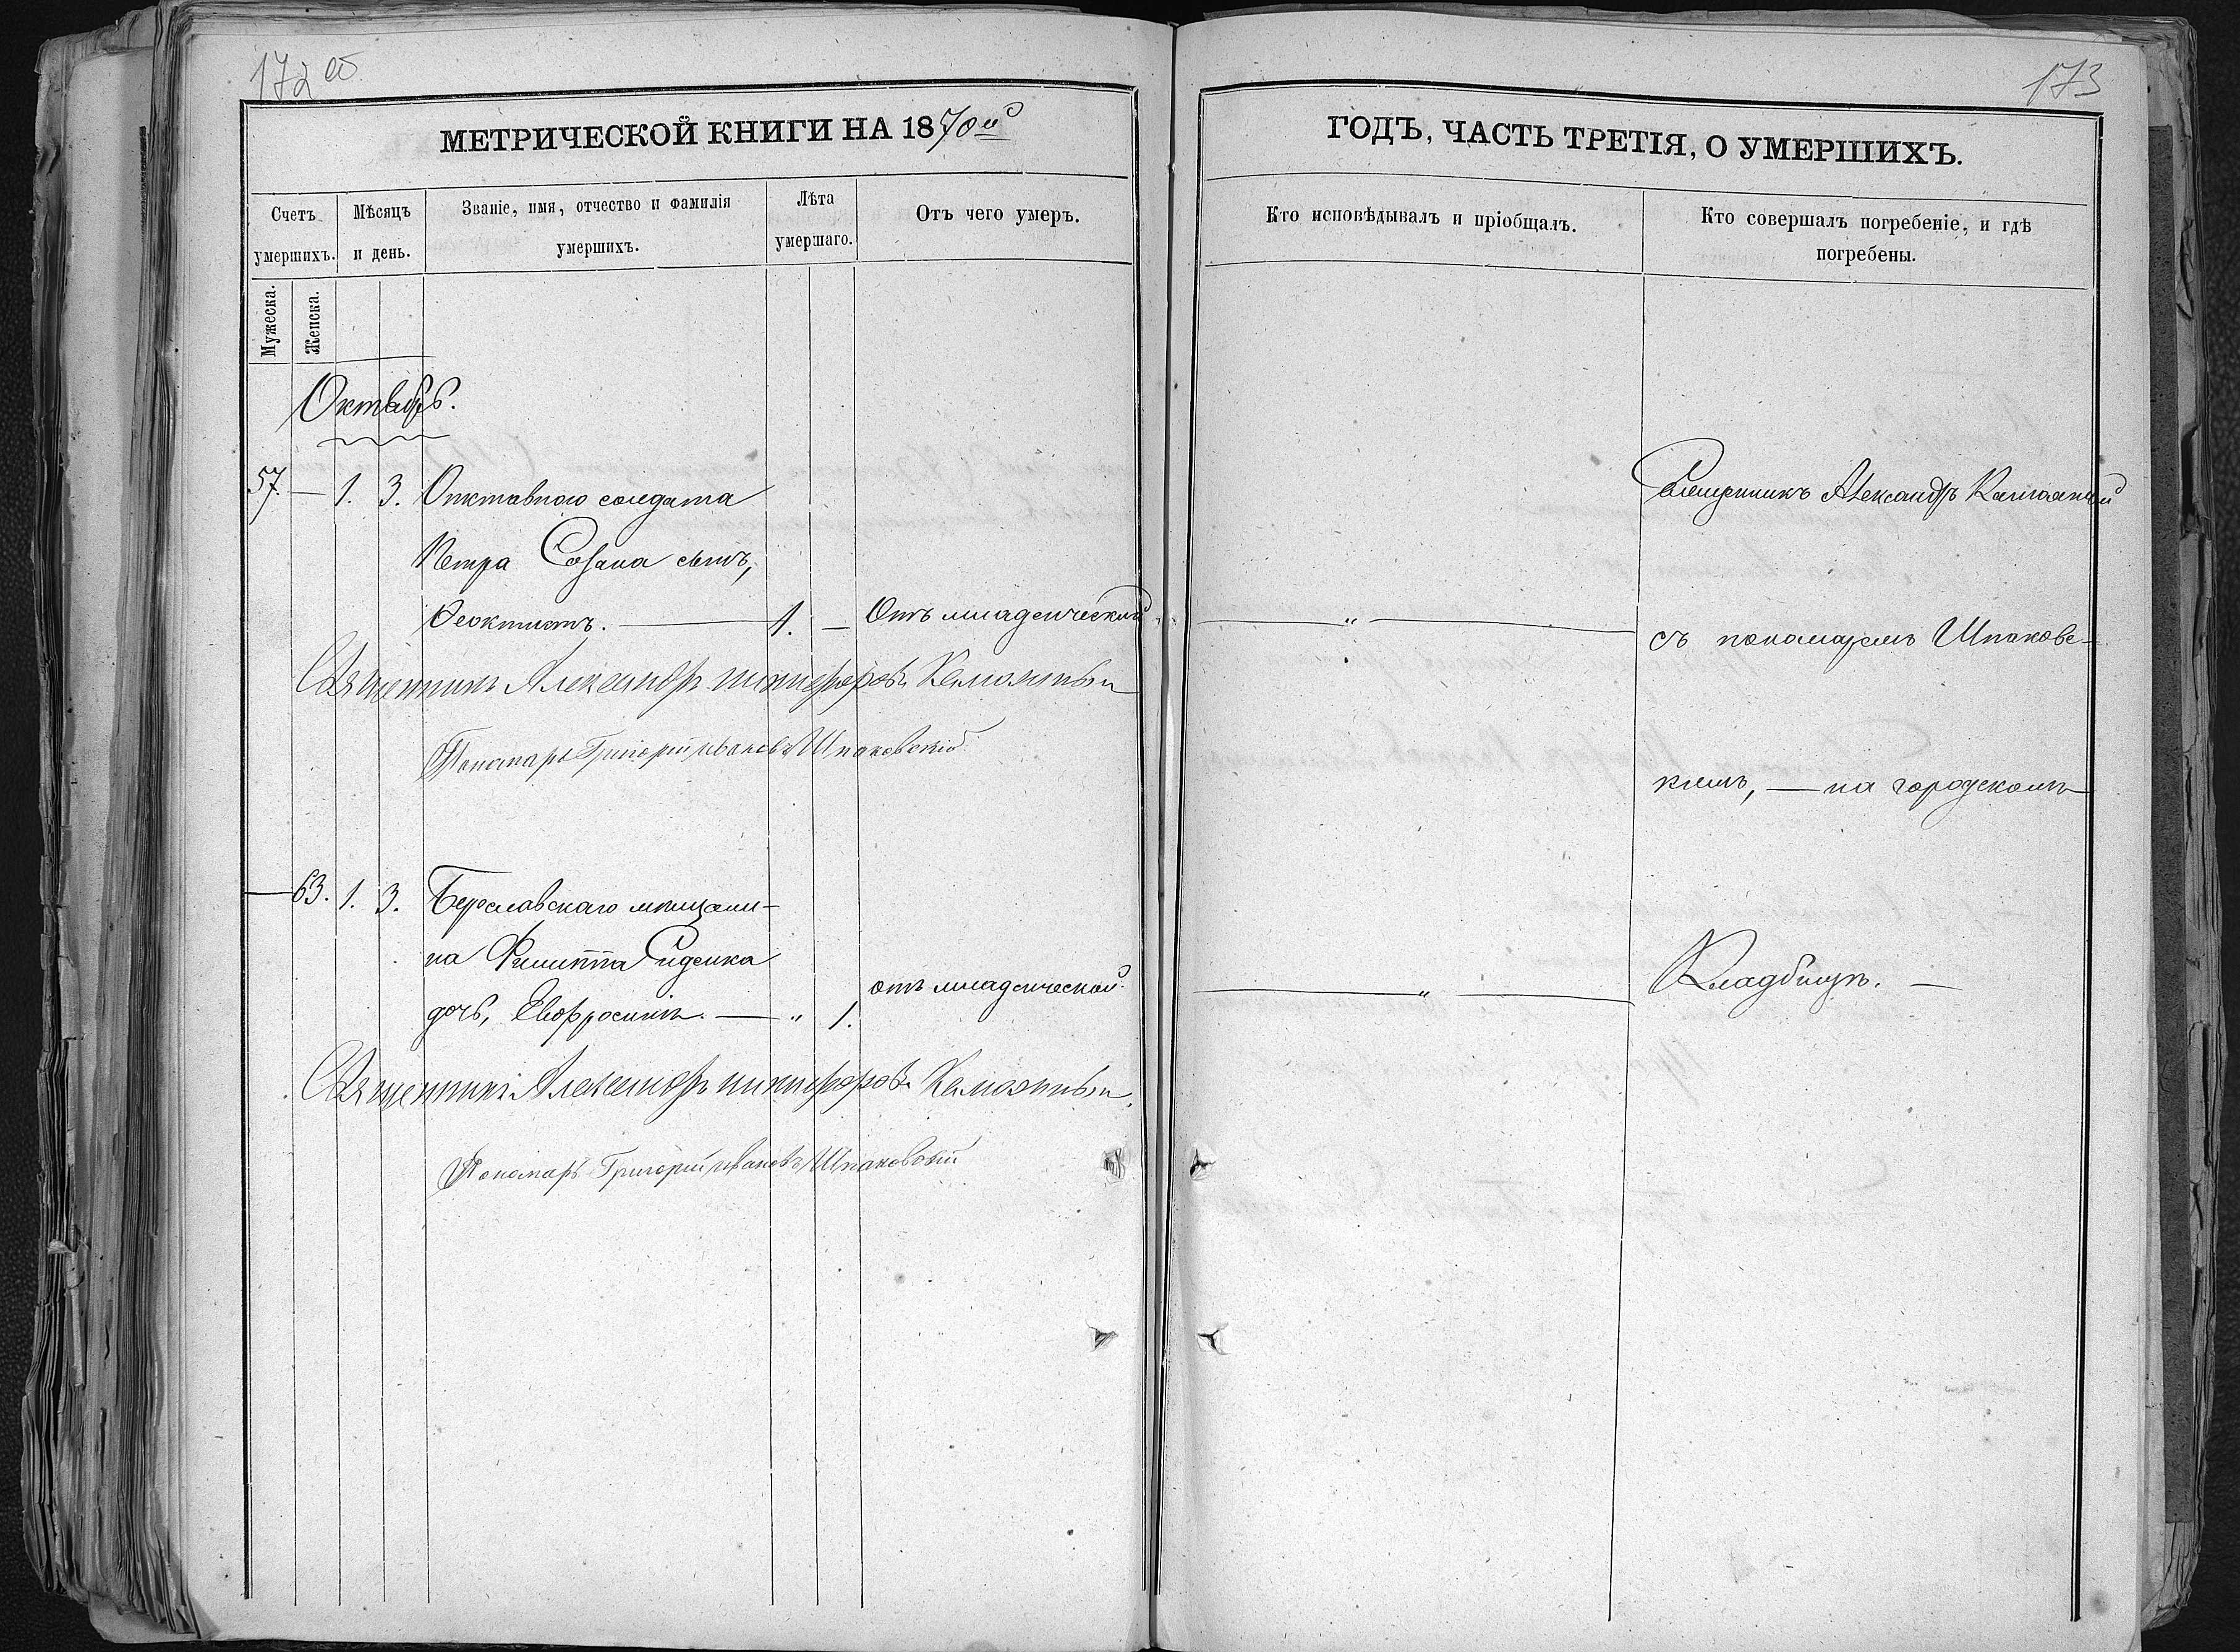 172 об
МЕТРИЧЕСКОЙ КНИГИ НА 1870й
Счетъ умершихъ.
Мѣсяцъ и день.
Званіе, имя, отчество и фамилія умершихъ.
Лѣта умершаго.
Отъ чего умеръ.
Мужеска.
Женска.
Октябрь.
57. — 1. 3. Отставного солдата
Петра сынъ,
Феоктистъ. — 1. — Отъ младенческой
Священникъ Александръ Никифоровъ
Пономарь Григорій Ивановъ Шпаковскій
— 63. 1. 3. Бериславскаго мѣщани-
на Филиппа Сиденка
дочь, Евфросинія. — " 1. отъ младенческой.
Священникъ Александръ Никифоровъ
Пономарь Григорій Ивановъ Шпаковскій
173
ГОДЪ, ЧАСТЬ ТРЕТІЯ, О УМЕРШИХЪ.
Кто исповѣдывалъ и пріобщалъ.
Кто совершалъ погребеніе, и гдѣ
погребены.
Священникъ Александръ
— " — съ пономаремъ Шпаковс-
кимъ, — на городскомъ
— " — Кладбищѣ. —